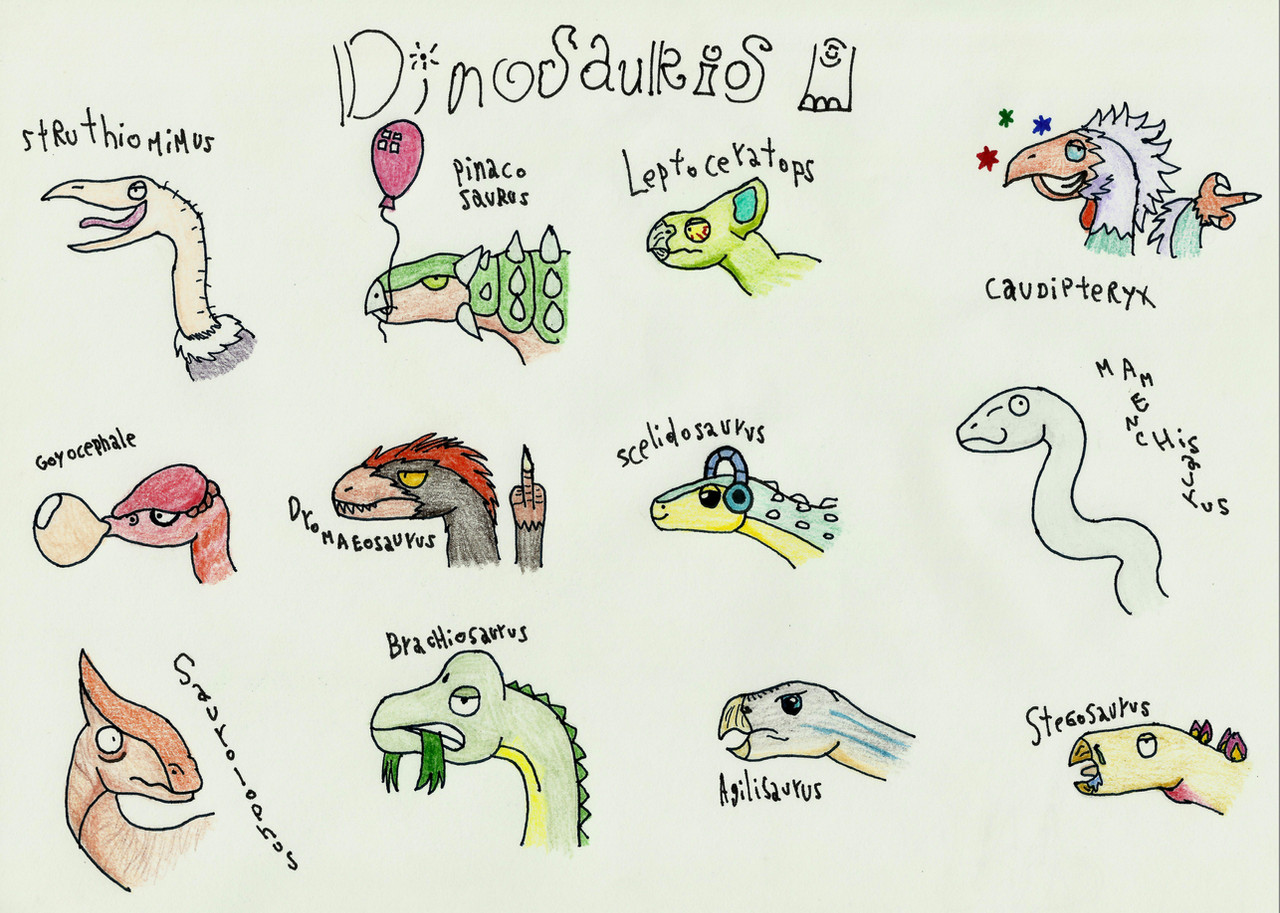 DinoSauRioS
StRuthioMiMUS
pinaco
saurus
Leptoceratops
CauDipteryx
Goyocephale
DroMAEosaurus
scelidosaurus
MAMENCHisaurus
Saurolophus
BracHiosaurus
Agilisaurus
SteGosaurus